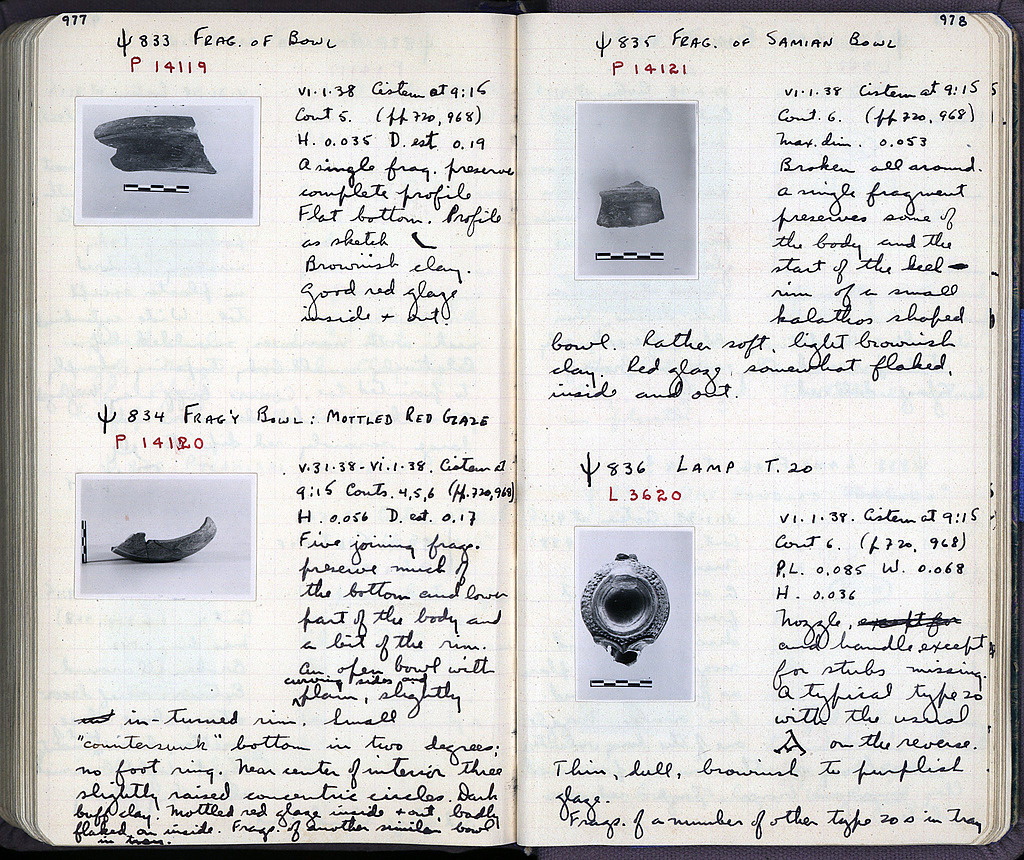 977
Ψ 833 FRAG. OF BOWL
P 14119
VI·1·38 Cistern at 9:15
Cont 5. (pp 720, 968)
H. 0.035 D. est. 0.19
A single frag. preserves
complete profile
Flat bottom. Profile
as sketch
Brownish clay.
Good red glaze
inside + out.
Ψ 834 FRAG'Y BOWL: MOTTLED RED GLAZE
P 14120
V·31·38-VI·1·38. Cistern at
9:15 Conts. 4,5,6 (pp. 720, 968)
H. 0.056 D. est. 0.17
Five joining frags.
preserve much of
the bottom and lower
part of the body and
a bit of the rim.
An open bowl with
curving sides and
plain, slightly
in-turned rim. Small
"countersunk" bottom in two degrees;
no foot ring. Near center of interior three
slightly raised concentric circles. Dark
buff clay. Mottled red glaze inside + out, badly
flaked on inside. Frags. of another similar bowl
in tray.
978
Ψ 835 FRAG. OF SAMIAN BOWL
P 14121
VI·1·38 Cistern at 9:15
Cont. 6. (pp 720, 968)
Max. dim. 0.053
Broken all around.
A single fragment
preserves some of
the body and the
start of the keel-
rim of a small
kalathos shaped
bowl. Rather soft, light brownish
clay. Red glaze, somewhat flaked,
inside and out.
Ψ 836 LAMP T. 20
L 3620
VI·1·38. Cistern at 9:15
Cont 6. (p 720, 968)
P.L. 0.085 W. 0.068
H. 0.036
Nozzle, except for
and handle except
for stubs missing.
A typical type 20
with the usual
A on the reverse.
Thin, dull, brownish to purplish
glaze.
Frags. of a number of other type 20s in tray